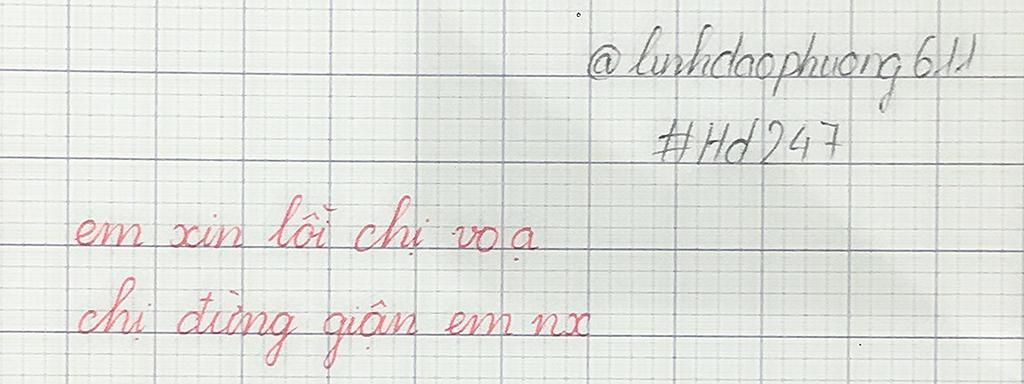 @linhdaophuong611
#Hd247
em xin lỗi chị vo ạ
chị đừng giận em nx